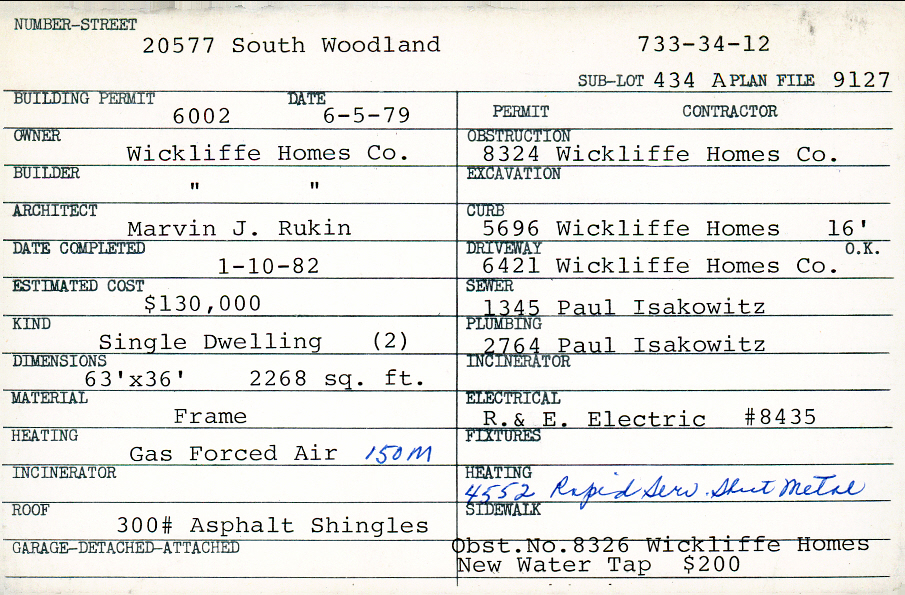 NUMBER-STREET
20577 South Woodland 733-34-12
SUB-LOT 434 A PLAN FILE 9127
BUILDING PERMIT DATE
6002 6-5-79
PERMIT CONTRACTOR
OWNER
Wickliffe Homes Co.
OBSTRUCTION
8324 Wickliffe Homes Co.
BUILDER
" "
EXCAVATION
ARCHITECT
Marvin J. Rukin
CURB
5696 Wickliffe Homes 16'
DATE COMPLETED
1-10-82
DRIVEWAY O.K.
6421 Wickliffe Homes Co.
ESTIMATED COST
$130,000
SEWER
1345 Paul Isakowitz
KIND
Single Dwelling (2)
PLUMBING
2764 Paul Isakowitz
DIMENSIONS
63'x36' 2268 sq. ft.
INCINERATOR
MATERIAL
Frame
ELECTRICAL
R.& E. Electric #8435
HEATING
Gas Forced Air 150M
FIXTURES
INCINERATOR
HEATING
4552 Rapid Serv. Sheet Metal
ROOF
300# Asphalt Shingles
SIDEWALK
GARAGE-DETACHED-ATTACHED
Obst.No.8326 Wickliffe Homes
New Water Tap $200